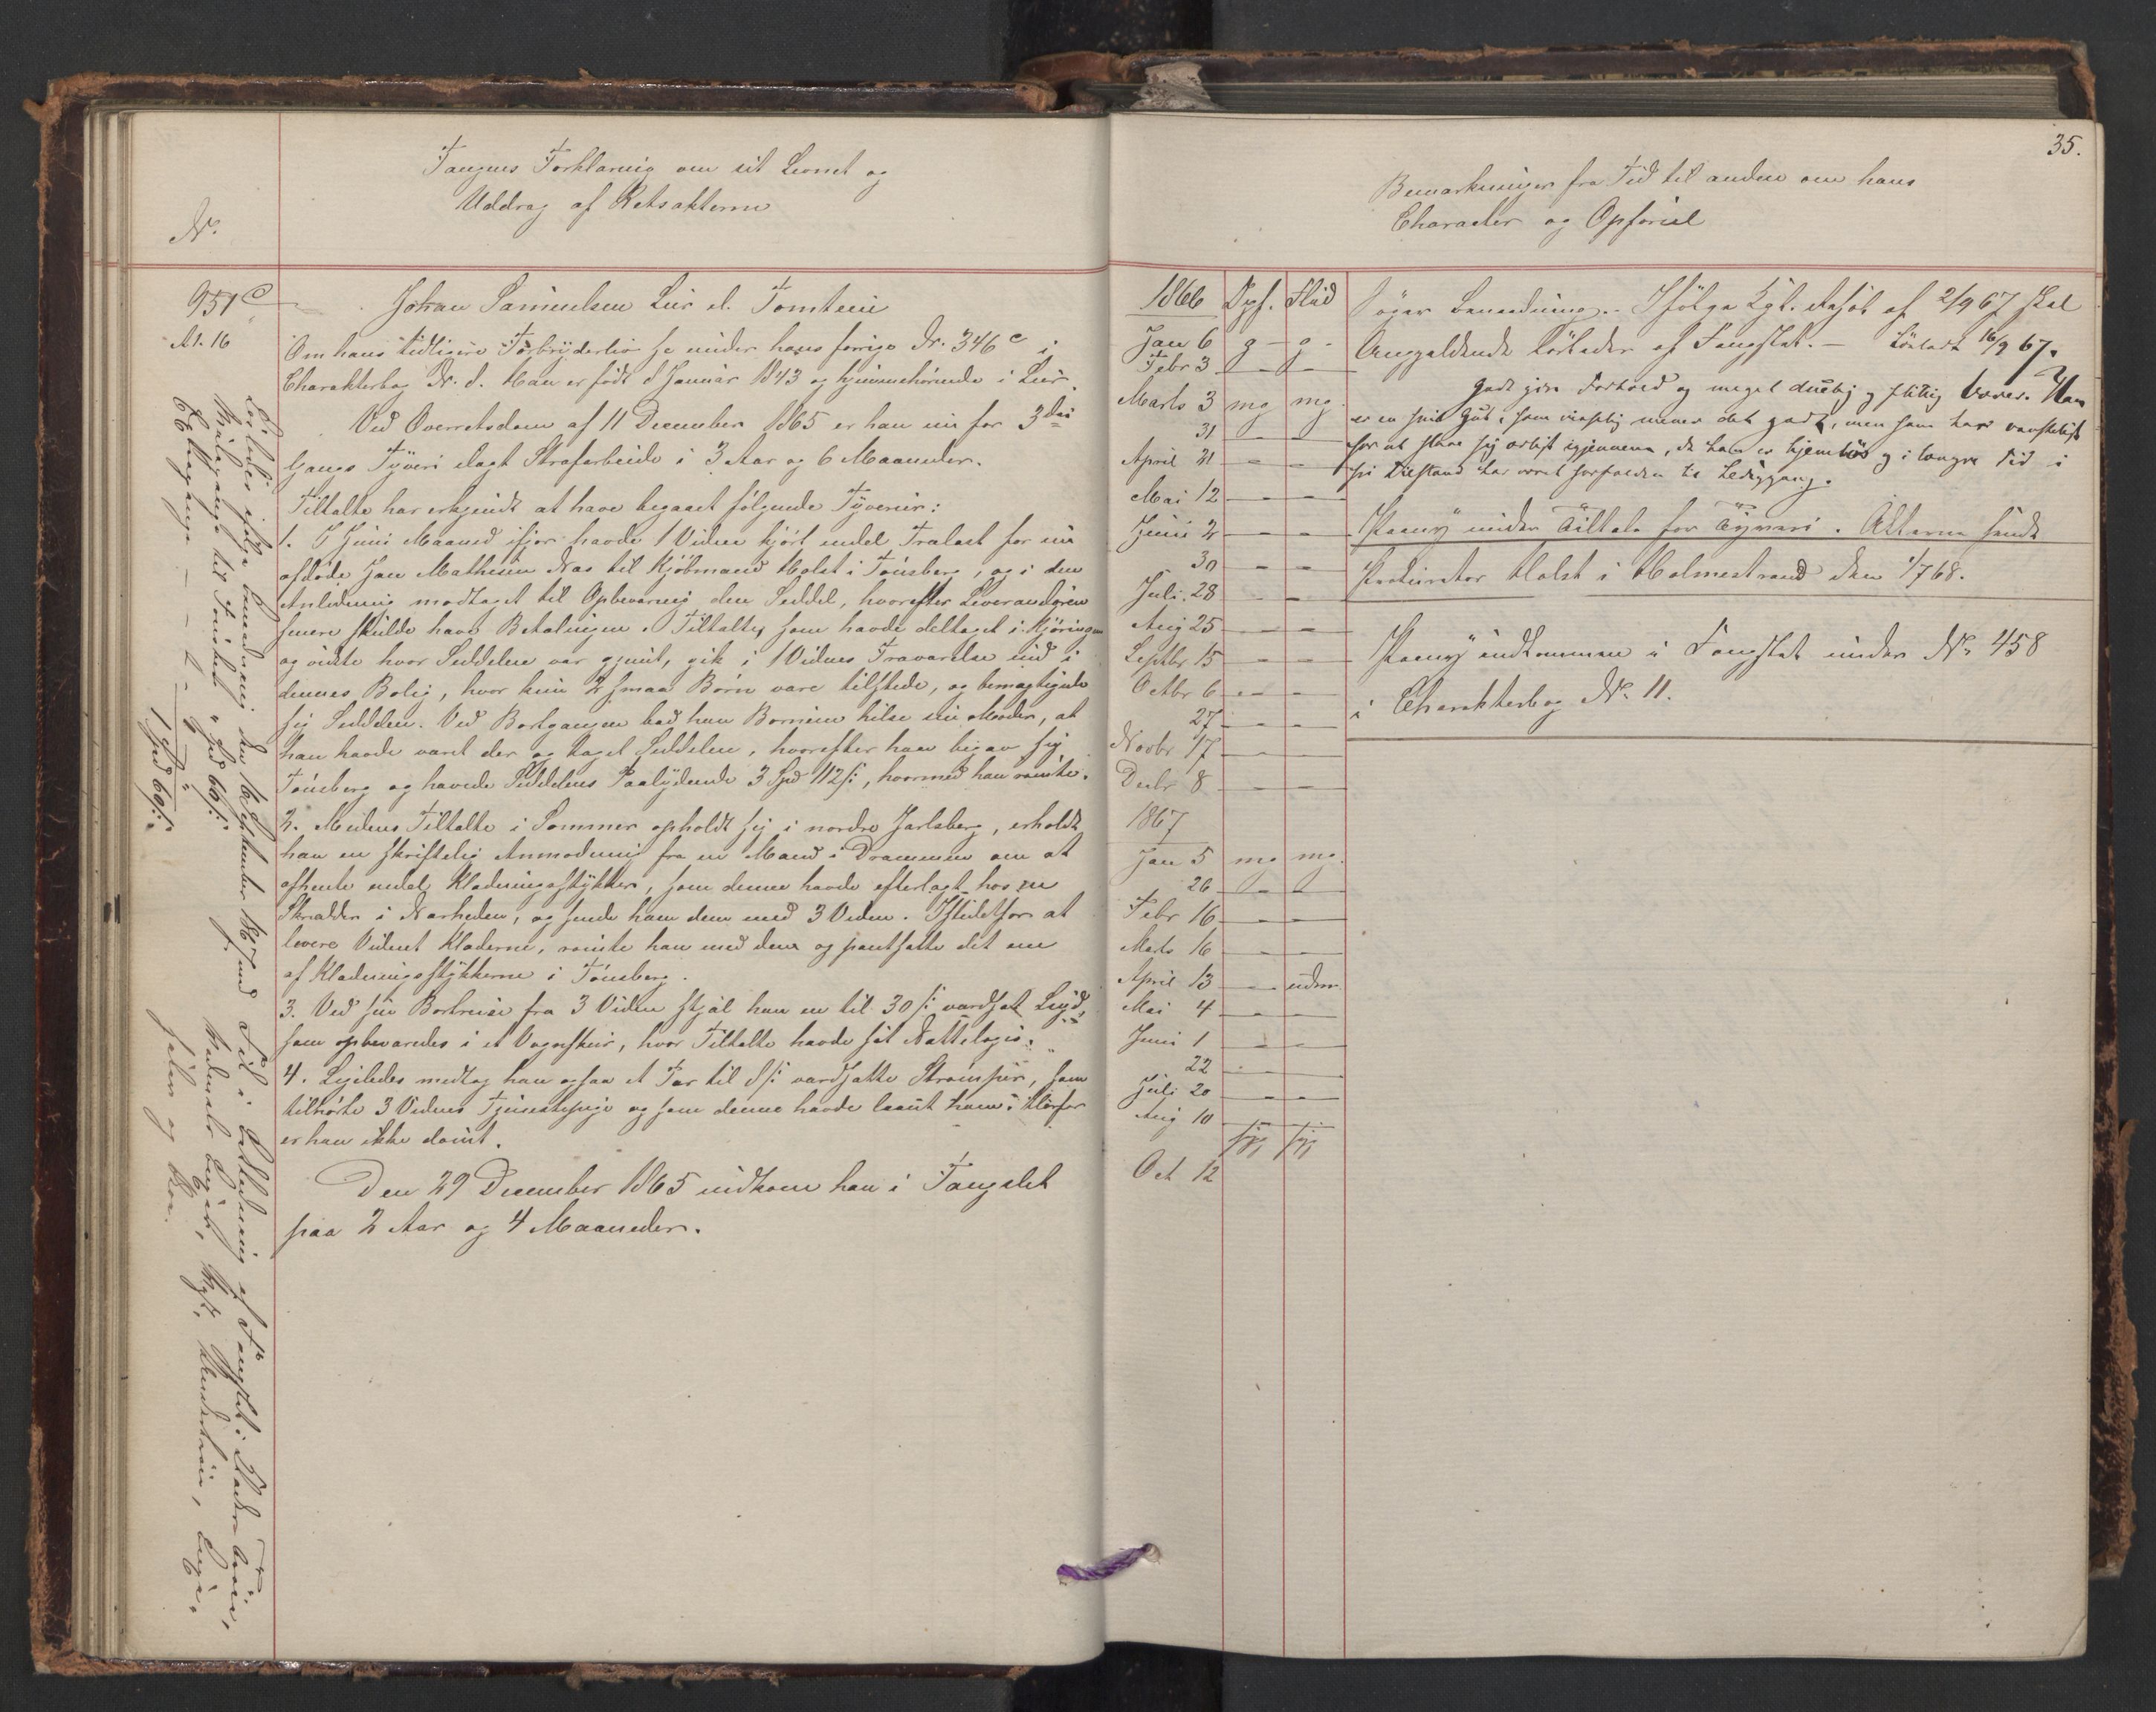 Fangens Forklaring om sit Levnet og
Uddrag af Retsakterne
No.
951 c
At. 16
Johan Samuelsen Lier el. Tomteeie
Om hans tidligere Forbryderliv se under hans forrige Nr. 346 c i
Charakterbog Nr. 8. Han er født 8 Januar 1843 og hjemmehørende i Lier.
Ved Overretsdom af 11 December 1865 er han nu for 3die
Gangs Tyveri ilagt Strafarbeide i 3 Aar og 6 Maaneder.
Tiltalte har erkjendt at have begaaet følgende Tyverier:
1. I Juni Maaned ifjor havde 1 Vidne kjørt endel Trælast for nu
afdøde Jan Mathisen Næs til Kjøbmand Holst i Tønsberg, og i den
Anledning modtaget til Opbevaring den Seddel, hvorefter Leverandøren
senere skulde have Betalingen. Tiltalte, som havde deltaget i Kjøringen
og vidste hvor Seddelen var gjemt, gik i 1 Vidnes Fraværelse ind i
dennes Bolig, hvor kun 2 smaa Børn vare tilstede, og bemægtigede
sig Seddelen. Ved Bortgangen bad han Børnene hilse sin Moder, at
han havde været der og taget Seddelen, hvorefter han begav sig
Tønsberg og hævede Seddelens Paalydende 3 Spd 112 s:, hvormed han rømte.
2. Medens Tiltalte i Sommer opholdt sig i nordre Jarlsberg, erholdt
han en skriftelig Anmodning fra en Mand i Drammen om at
afhente endel Klædningsstykker, som denne havde efterlagt hos en
Skrædder i Nærheden, og sende ham dem med 3 Vidne. Istedetfor at
levere Vidnet Klæderne, rømte han med dem og pantsatte det ene
af Klædningsstykkerne i Tønsberg.
3. Ved sin Bortreise fra 3 Vidne stjal han en til 30 s: værdsat
som opbevaredes i et Vognskur, hvor Tiltalte havde sit Nattelogis.
4. Ligeledes medtog han ogsaa et Par til 8 s: værdsatte Strømper, som
tilhørte 3 Vidnes Tjenestepige og som denne havde laant ham; Herfor
er han ikke dømt.
Den 29 December 1865 indkom han i Fængslet
paa 2 Aar og 4 Maaneder.
Løslades ifølge Benaadning den 16 September 1867 med
til Forbrug " Spd 60 s:
1 Spd 60 s:
35.
Bemærkninger fra Tid til anden om hans
Character og Opførsel
1866 Opf. Flid
Jan 6 g g
Febr 3 – –
Marts 3 mg mg.
31 – –
April 21 – –
Mai 12 – –
Juni 2 – –
30 – –
Juli 28 – –
Aug 25 – –
Septbr 15 – –
Octbr 6 – –
27 – –
Novbr 17 –
Decbr 8 – –
1867
Jan 5 mg mg.
26 – –
Febr 16 – –
Marts 16 – –
April 13 – udm.
Mai 4 – –
Juni 1 – –
22 – –
Juli 20 – –
Aug 10
Oct 12
Søger Benaadning. Ifølge Kgl. Resol af 2/9 67 skal
Angjældende løslades af Fængslet. – Løsladt 16/9 67.
Godt Forhold og meget duelig og flittig Væver. Han
er en snil Gut, som viselig mener det godt, men som har vanskeligt
for at slaae sig ærligt igjennem, da han er hjemløs og i længre Tid i
fri Tilstand har været forfalden til Lediggang.
Paany under Tiltale for Tyveri. Akterne sendt
Prokurator Holst i Holmestrand den 1/7 68.
Paany indkommen i Fængslet under No. 458
i Charakterbog No. 11.